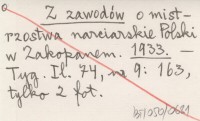 Z zawodów o mist-
rzostwa narciarskie Polski
w Zakopanem. 1933. —
Tyg. Il. 74, nr 9: 163,
tylko 2 fot.